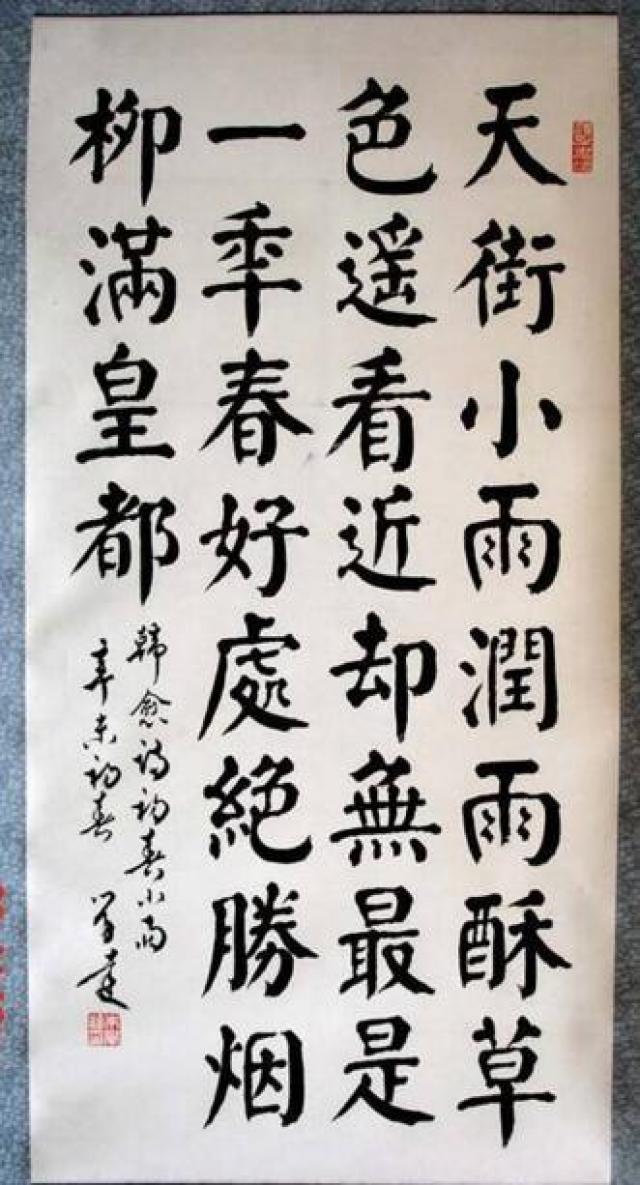 天街小雨潤雨酥草
色遥看近却無最是
一年春好處絶勝烟
柳滿皇都
韓愈詩初春小雨
辛未初春